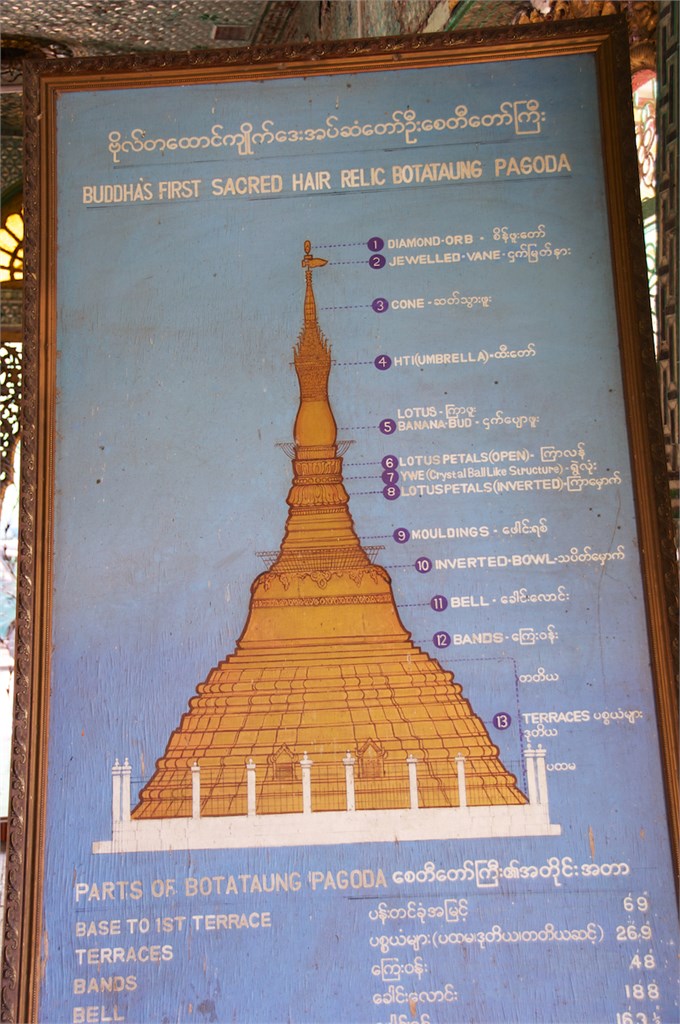 ဗိုလ်တထောင်ကျိုက်ဒေးအပ်ဆံတော်ဦးစေတီတော်ကြီး
BUDDHA'S FIRST SACRED HAIR RELIC BOTATAUNG PAGODA
1 DIAMOND-ORB - စိန်ဖူးတော်
2 JEWELLED-VANE-ငှက်မြတ်နား
3 CONE-ဆတ်သွားဖူး
4 HTI(UMBRELLA)-ထီးတော်
LOTUS-ကြာဖူး
5 BANANA-BUD-ငှက်ပျောဖူး
6 LOTUS PETALS(OPEN)-ကြာလန်
7 YWE(Crystal Ball Like Structure)-ရွဲလုံး
8 LOTUS PETALS(INVERTED)-ကြာမှောက်
9 MOULDINGS - ဖေါင်းရစ်
10 INVERTED-BOWL-သပိတ်မှောက်
11 BELL - ခေါင်းလောင်း
12 BANDS-ကြေးဝန်း
တတိယ
13 TERRACES ပစ္စယံများ
ဒုတိယ
ပထမ
PARTS OF BOTATAUNG PAGODA စေတီတော်ကြီး၏အတိုင်းအတာ
BASE TO 1ST TERRACE ပန်းတင်ခုံအမြင့် 6.9
TERRACES ပစ္စယံများ(ပထမ၊ဒုတိယ၊တတိယဆင့်) 26.9
BANDS ကြေးဝန်း 4.8
BELL ခေါင်းလောင်း 18.8